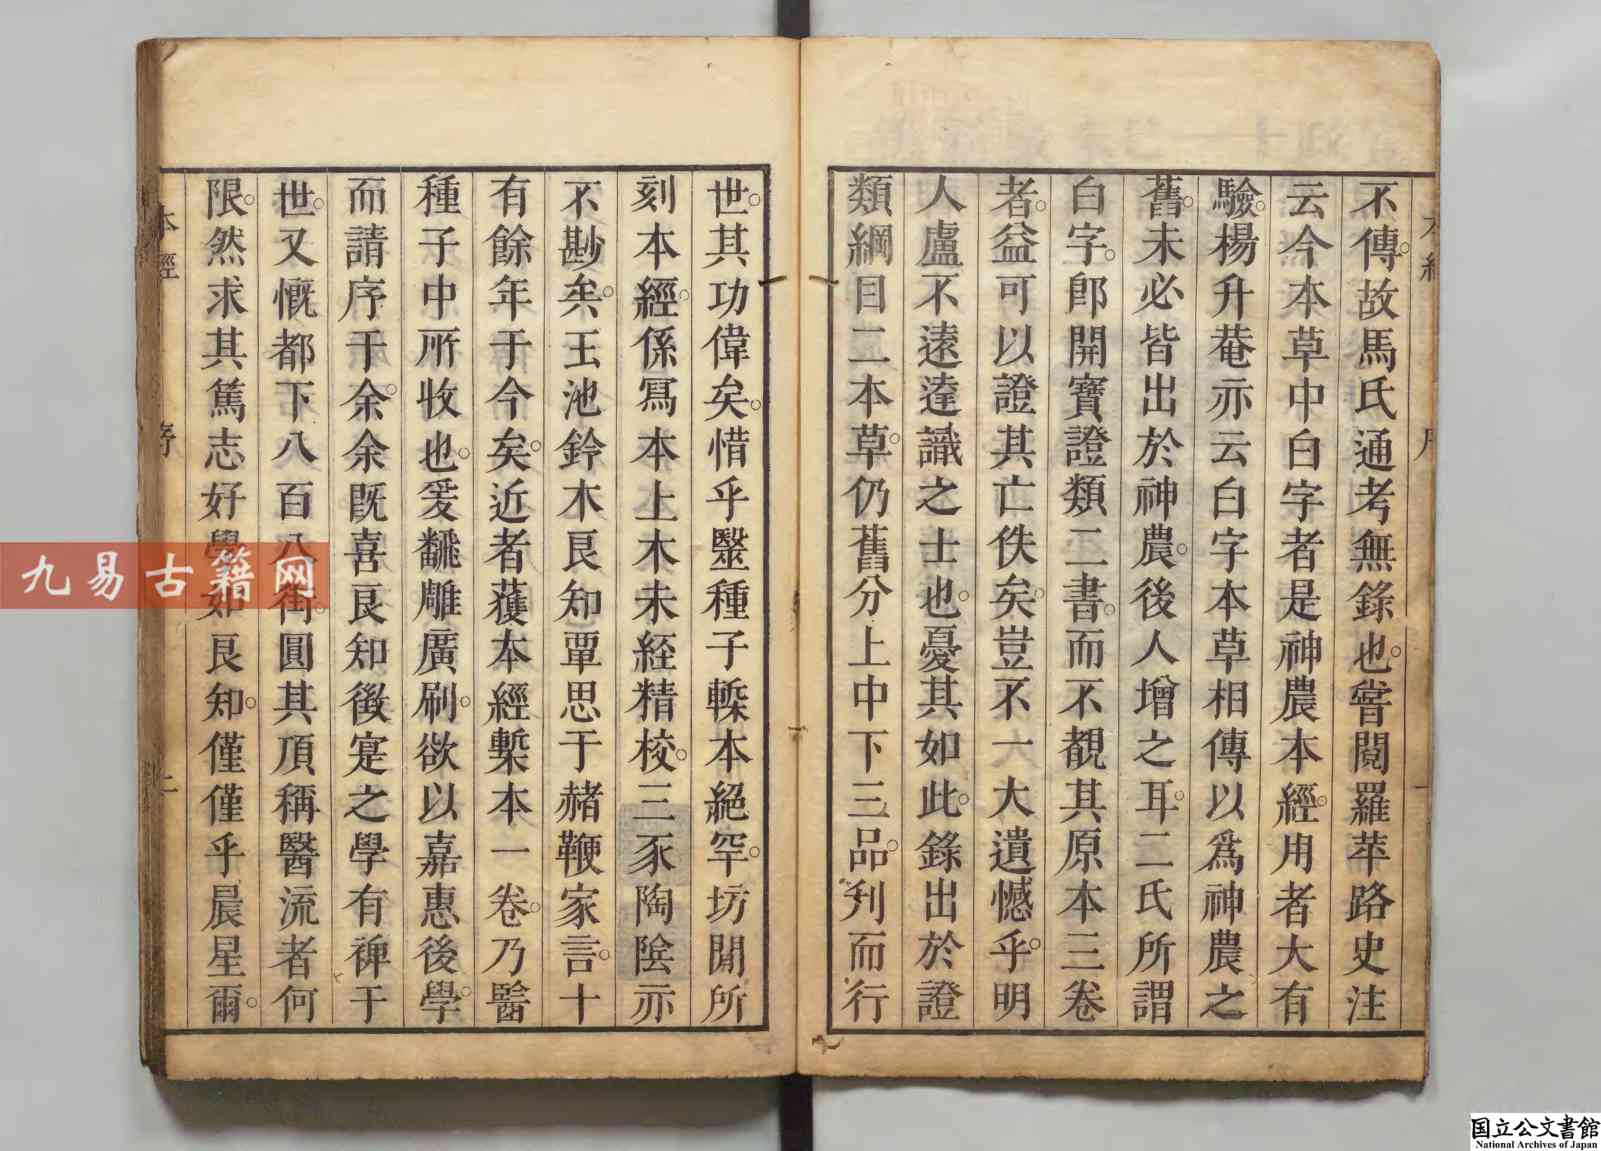 不傳故馬氏通考無錄也嘗閱羅苹路史注
云今本草中白字者是神農本經用者大有
驗楊升菴亦云白字本草相傳以爲神農之
舊未必皆出於神農後人增之耳二氏所謂
白字卽開寶證類二書而不覩其原本三卷
者益可以證其亡佚矣豈不一大遺憾乎明
人盧不遠達識之士也憂其如此錄出於證
類綱目二本草仍舊分上中下三品列而行
世其功偉矣惜乎毉種子槧本絕罕坊閒所
刻本經係寫本上木未經精校三豕陶陰亦
不尠矣玉池鈴木良知覃思于赭鞭家言十
有餘年于今矣近者獲本經槧本一卷乃醫
種子中所收也爰飜雕廣刷欲以嘉惠後學
而請序于余余既喜良知徵寔之學有裨于
世又慨都下八百八街圓其頂稱醫流者何
限然求其篤志好學如良知僅僅乎晨星爾
本經
序
二
九易古籍网
国立公文書館
National Archives of Japan